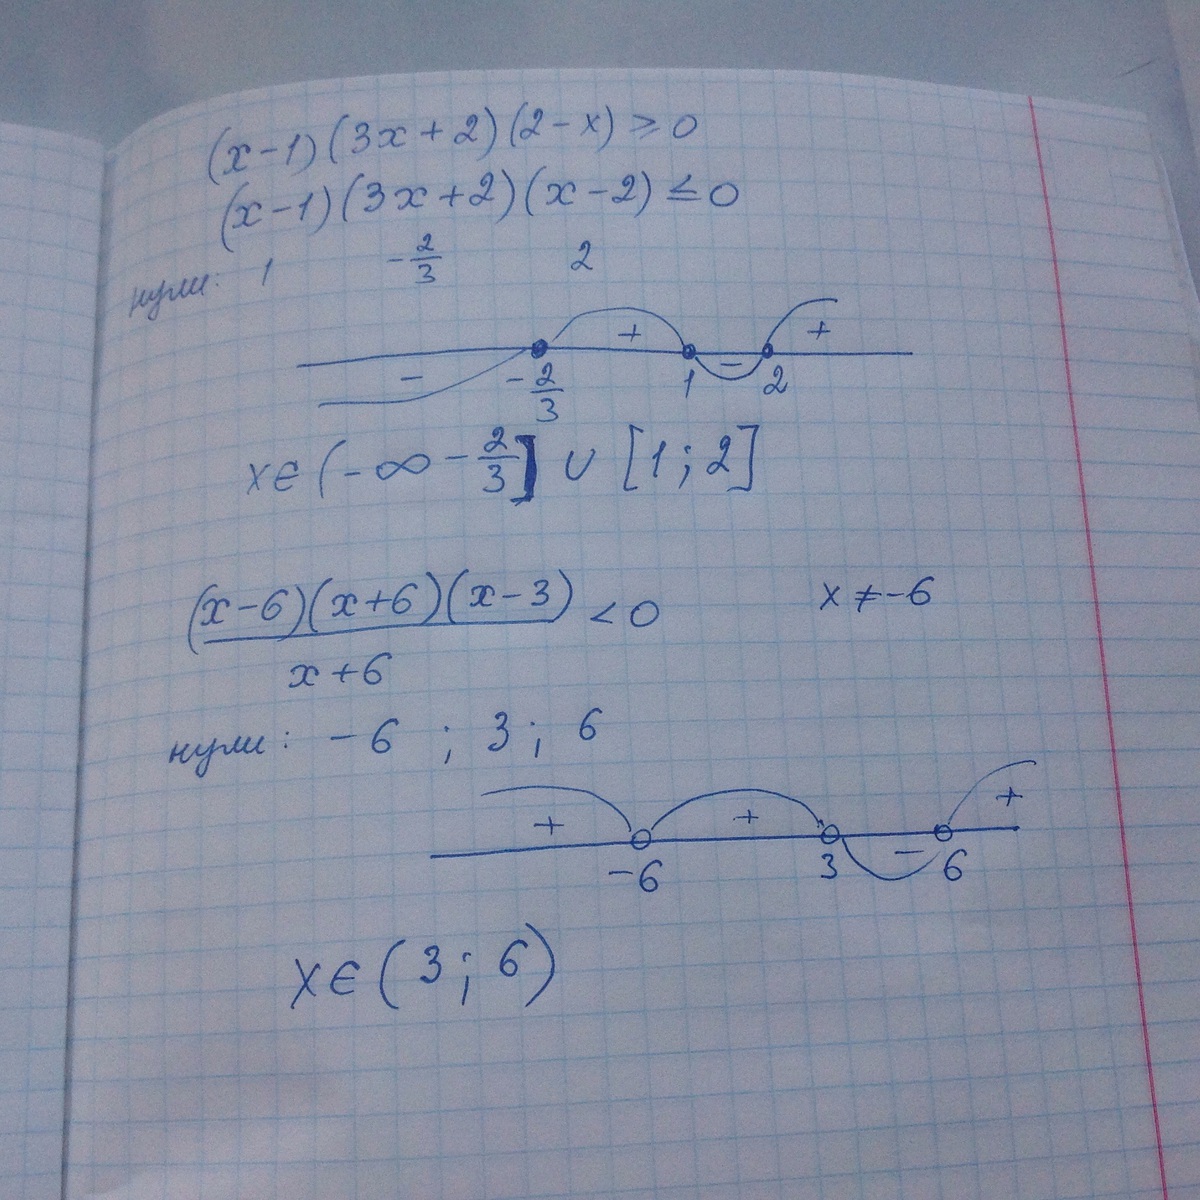 (x-1)(3x+2)(2-x)≥0
(x-1)(3x+2)(x-2)≤0
нули: 1 -2/3 2
- + - +
-2/3 1 2
x∈(-∞ -2/3] ∪ [1;2]
(x-6)(x+6)(x-3) <0 x≠-6
x+6
нули: -6 ; 3 ; 6
+ + - +
-6 3 6
x∈(3;6)